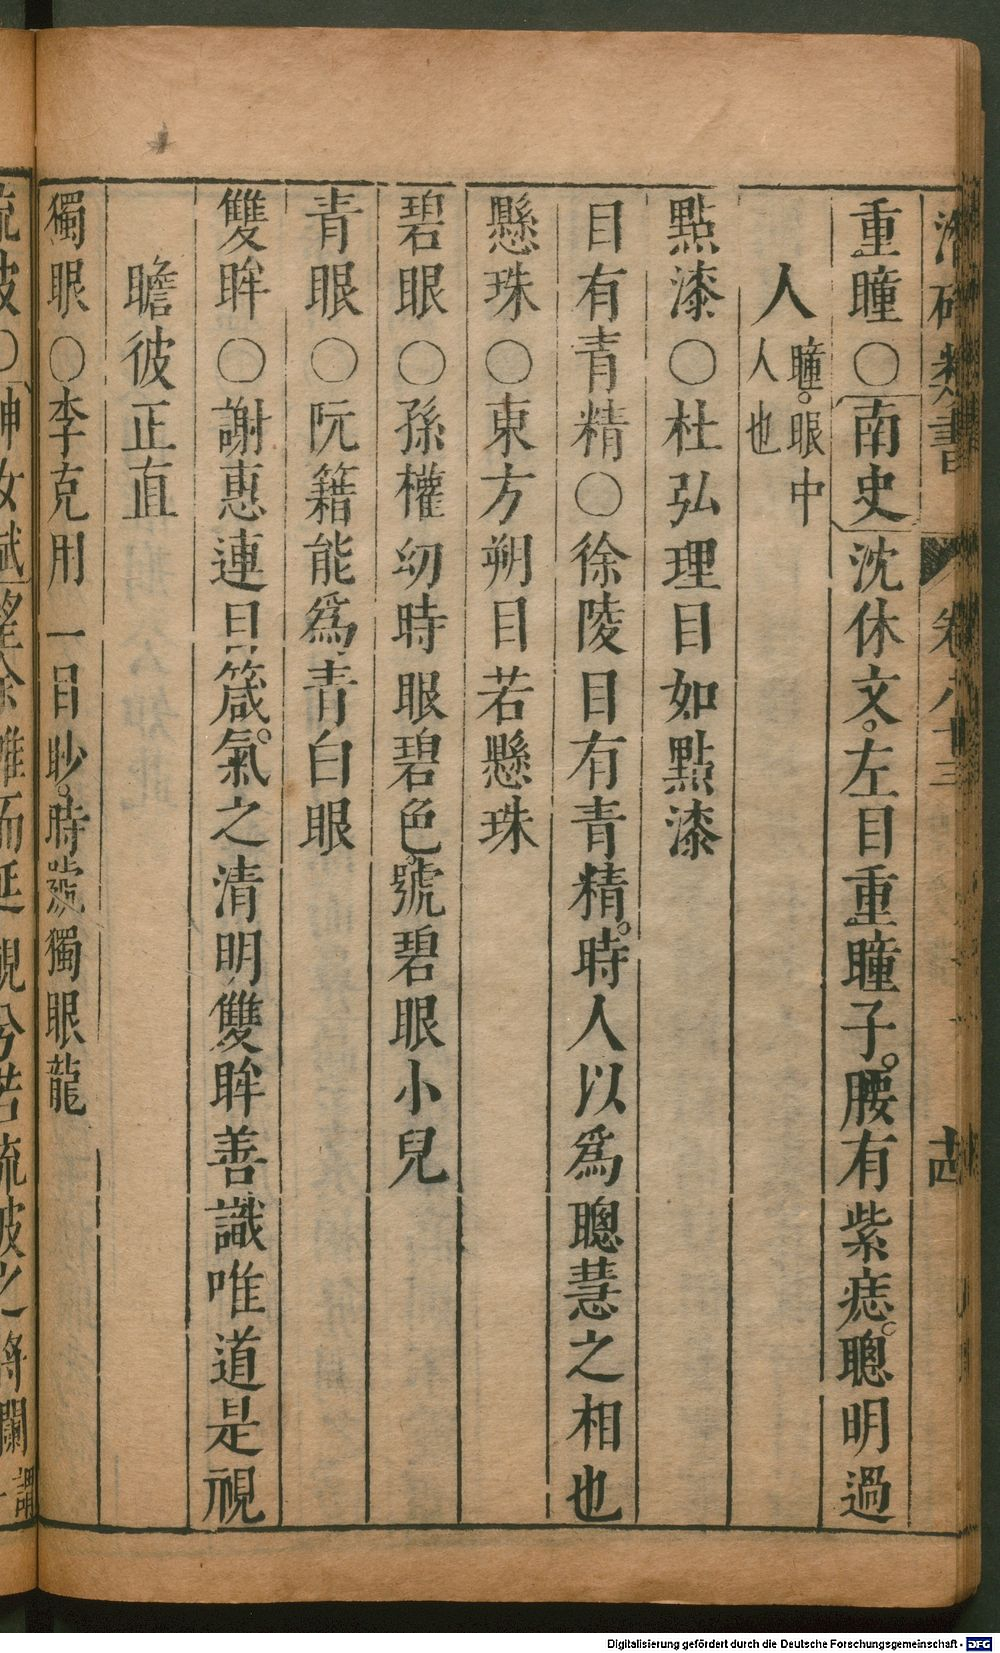 潛確類書 卷八十三
重瞳○南史沈休文。左目重瞳子。腰有紫痣。聰明過
人瞳。眼中人也
點漆○杜弘理目如點漆
目有青精○徐陵目有青精。時人以爲聰慧之相也
懸珠○東方朔目若懸珠
碧眼○孫權幼時眼碧色。號碧眼小兒
青眼○阮籍能爲青白眼
雙眸○謝惠連目箴。氣之清明雙眸善識唯道是視
瞻彼正直
獨眼○李克用一目眇。時號獨眼龍
流波○神女賦望余帷而延視兮若流波之將瀾
Digitalisierung gefördert durch die Deutsche Forschungsgemeinschaft - DFG